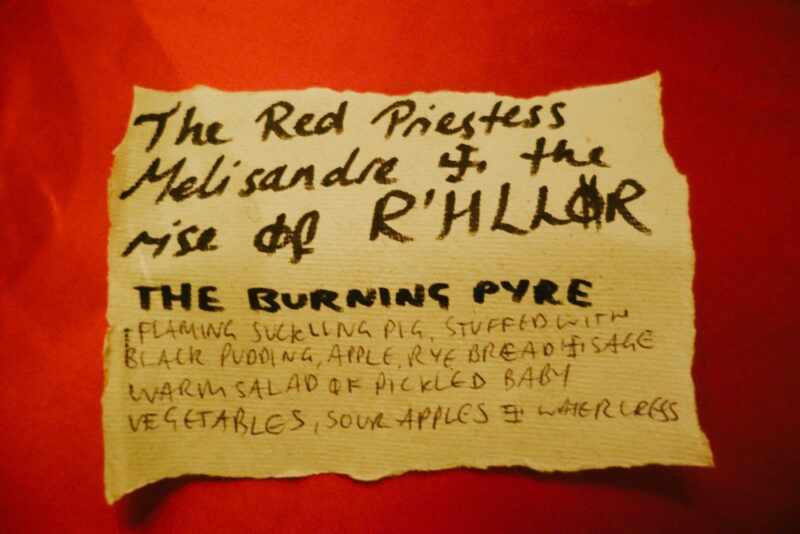 The Red Priestess
Melisandre & the
rise of R'HLLOR
THE BURNING PYRE
FLAMING SUCKLING PIG, STUFFED WITH
BLACK PUDDING, APPLE, RYE BREAD & SAGE
WARM SALAD OF PICKLED BABY
VEGETABLES, SOUR APPLES & WATERCRESS